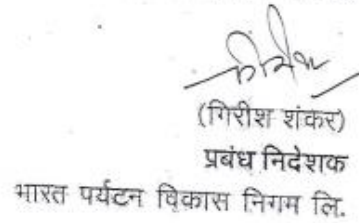 (गिरीश शंकर)
प्रबंध निदेशक
भारत पर्यटन विकास निगम लि.